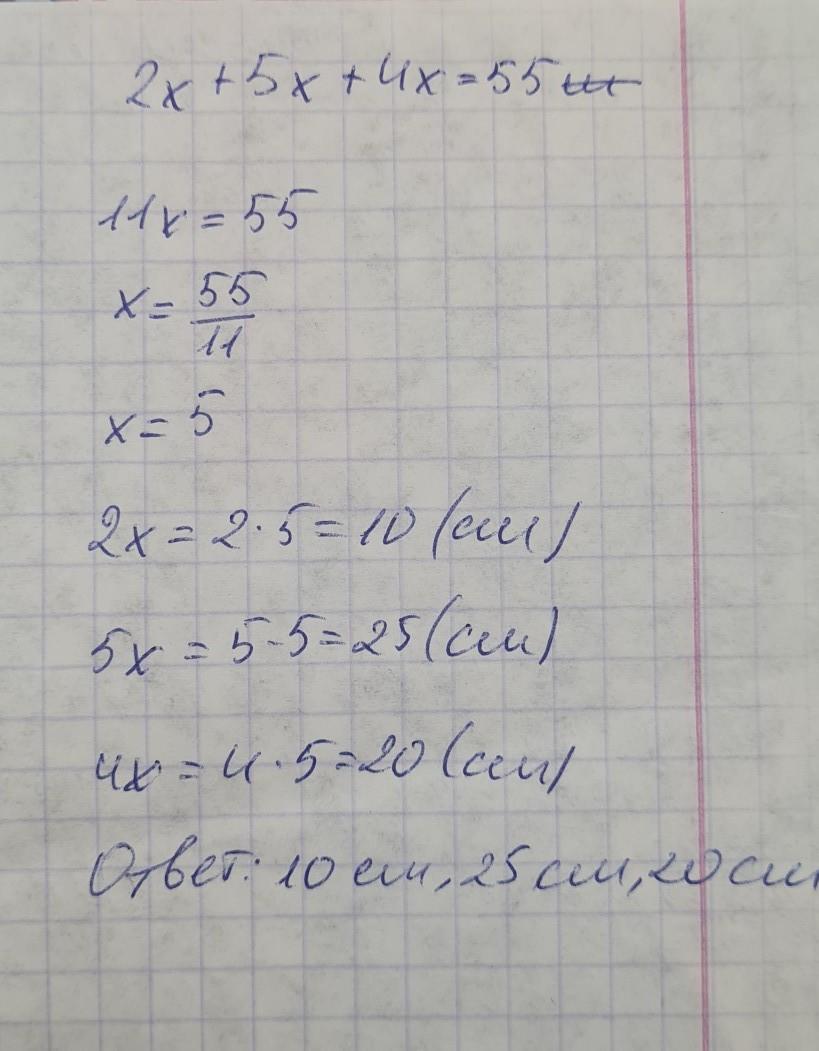 2x + 5x + 4x = 55
11x = 55
x = 55/11
x = 5
2x = 2 · 5 = 10 (см)
5x = 5 · 5 = 25 (см)
4x = 4 · 5 = 20 (см)
Ответ: 10 см, 25 см, 20 см